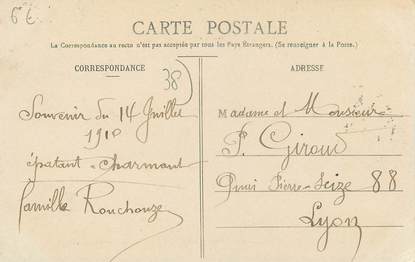 6€
CARTE POSTALE
La Correspondance au recto n'est pas acceptée par tous les Pays Étrangers. (Se renseigner à la Poste.)
CORRESPONDANCE
38
Souvenir du 14 Juillet
1910
épatant-charmant
famille Ronchouze
ADRESSE
Madame et Monsieur
P. Giroud
Quai Pierre-Scize 88
Lyon